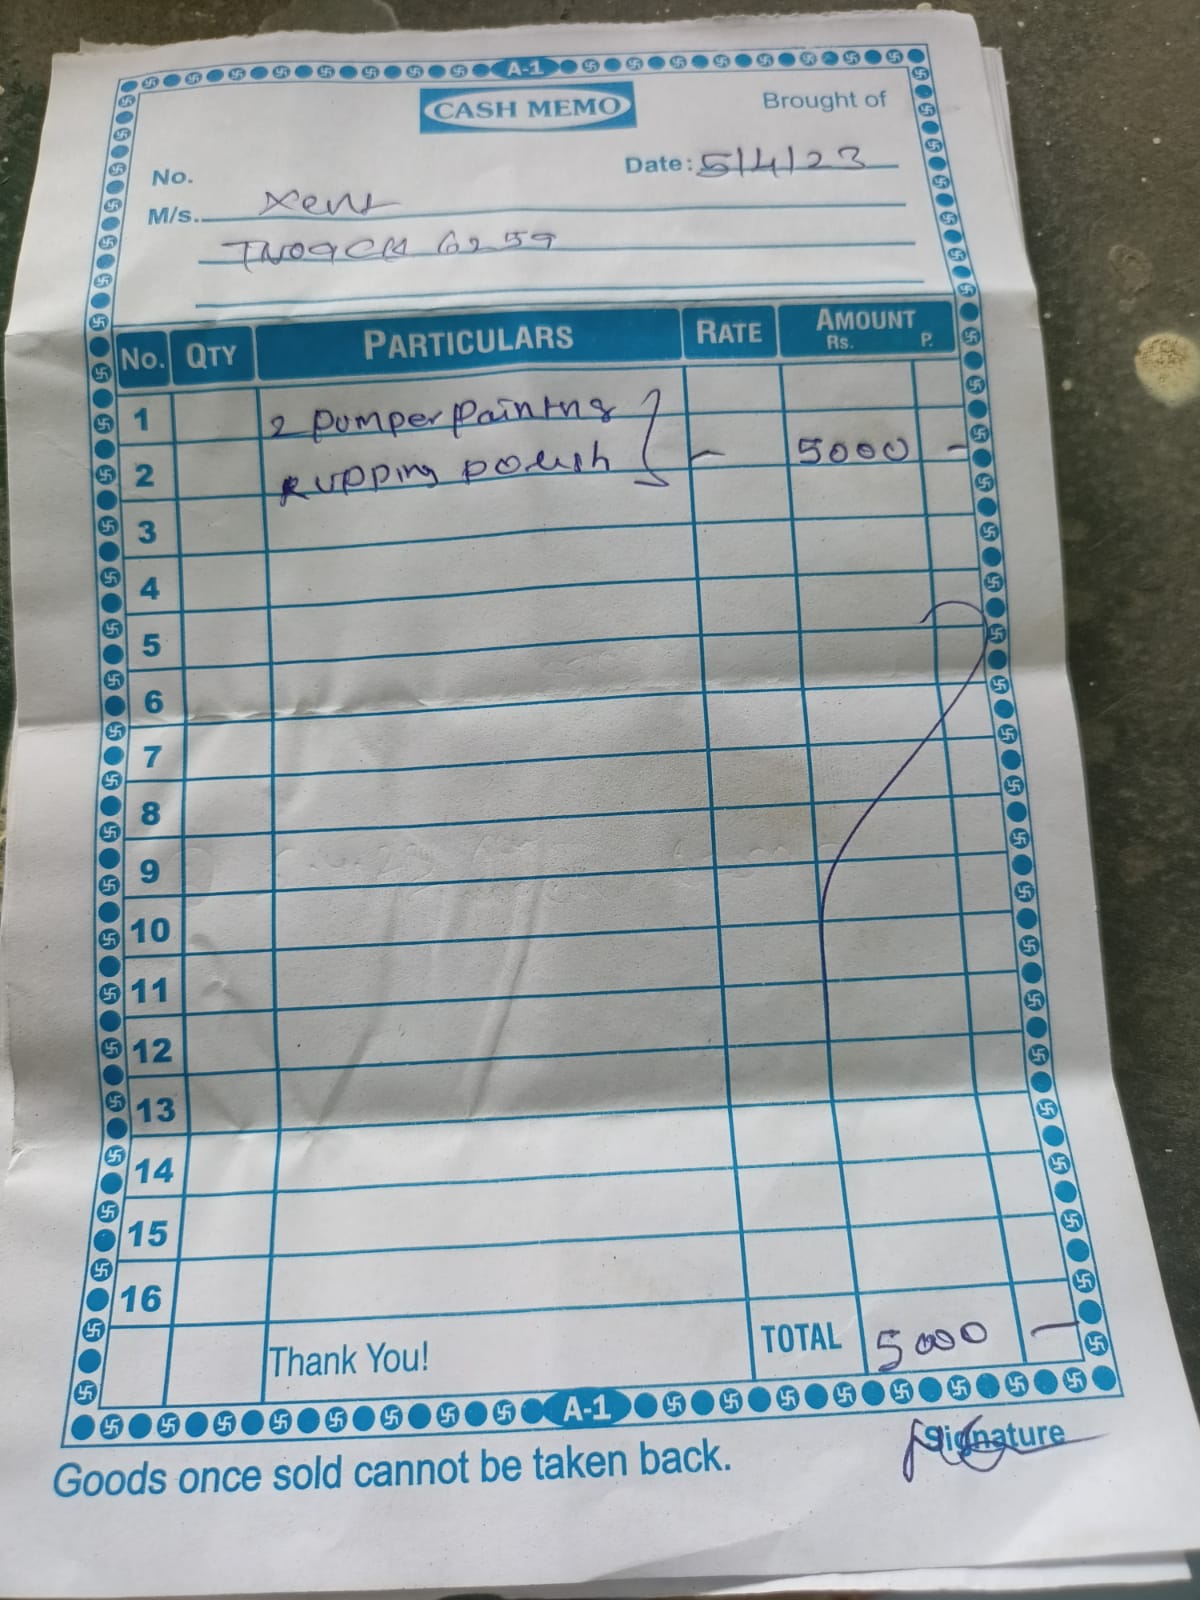 A-1
CASH MEMO
Brought of
No.
Date: 5/4/23
M/s. Xent
TN09CM 6259
No. QTY PARTICULARS RATE AMOUNT
Rs. P.
1 2 Pumper Painting
2 Rupping polish - 5000 -
3
4
5
6
7
8
9
10
11
12
13
14
15
16
Thank You! TOTAL 5000 -
A-1
Goods once sold cannot be taken back.
Signature